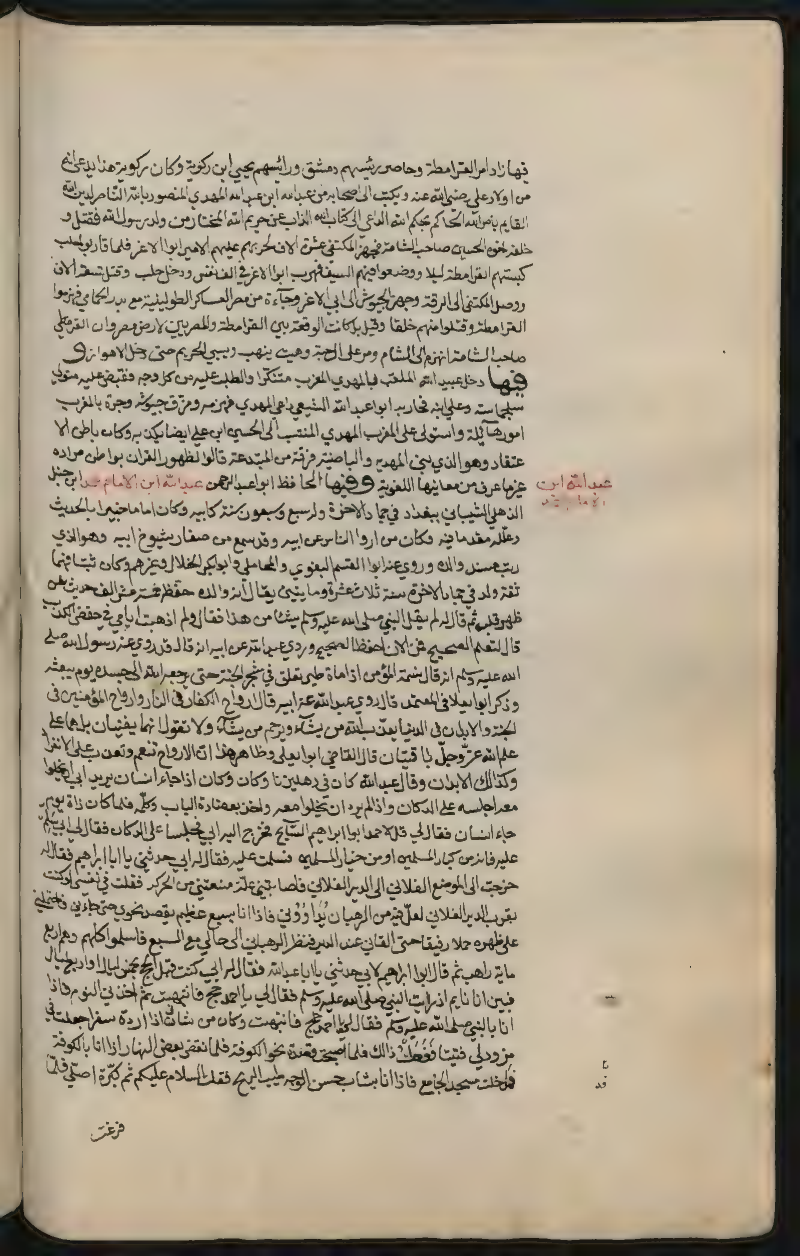 فيها زاد امر القرامطة وحاصر رئيسهم دمشق ورائسهم يحيى ابن زكوية وكان زكوية هذا يدعى انه
من اولاد علي رضي الله عنه ويكتب الى اصحابه من عبد الله ابن عبد الله المهدي المنصور بالله الناصر لدين الله
القايم بامر الله الحاكم بحكم الله الداعي الى كتاب الله الذاب عن حريم الله المختار من ولد رسول الله فقتل و
خلفه اخوه الحسين صاحب الشامة فجهز المكتفي عشرة الاف لحربهم عليهم الامير ابو الاغر فلما قاربوا حلب
كبستهم القرامطة ليلا ووضعوا فيهم السيف فهرب ابو الاغر في الف نفس ودخل حلب وقتل تسعة الاف
ووصل المكتفي الى الرقة وجهز الجيوش الى ابي الاغر وجاءة من مصر العساكر الطولونية مع بدر الحمامي فهزموا
القرامطة وقتلوا منهم خلقا وقيل بل كانت الوقعة بين القرامطة والمصريين لارض مصر وان القرمطي
صاحب الشامة انهزم الى الشام ومر على الرحبة وهيت ينهب ويسبي الحريم حتى دخل الاهواز و
فيها دخل عبيد الله الملقب بالمهدي المغرب متنكرا والطلب عليه من كل وجه فقبض عليه متولي
سجلماسة وعلى ابنه فحاربه ابو عبد الله الشيعي داعي المهدي فهزمه ومزق جيوشه وجرة بالمغرب
امور هايلة واستولى على المغرب المهدي المنتسب الى الحسين ابن علي ايضا بكذبه وكان باطني الا
عتقاد وهو الذي بنى المهدية والباطنية فرقة من المبتدعة قالوا لظهور القران بواطن مراده
غير ما عرف من معانيها اللغوية وفيها الحافظ ابو عبد الرحمن عبد الله ابن الامام احمد ابن حنبل
عبد الله ابن
الامام احمد
الذهلي الشيباني ببغداد في جماد الاخرة وله سبع وسبعون سنة كابيه وكان اماما خبيرا بالحديث
وعلله مقدما فيه وكان من اروا الناس عن ابيه وقد سمع من صغار شيوخ ابيه وهو الذي
رتب مسند والده وروي عنه ابو القسم البغوي والمحاملي وابو بكر الخلال وغيرهم وكان ثبتا فهما
ثقة ولد في جماد الاخرة سنة ثلاث عشرة وما يتين يقال ان والده حفظه خمسة عشر الف حديث عن
ظهر قلب ثم قال له لم يقل النبي صلى الله عليه وسلم شيئا من هذا فقال ولم اذهبت ايامي في حفظ الكذب
قال لتعلم الصحيح فمن الان احفظ الصحيح وروي عبد الله عن ابيه انه قال قد روي عن رسول الله صلى
الله عليه وسلم انه قال نسمة المؤمن اذا مات طير تعلق في شجر الجنة حتى يرجعه الله الى جسده يوم يبعثه
وذكر ابو يعلا في المعتمد قال روي عبد الله عن ابيه قال ارواح الكفار في النار وارواح المؤمنين في
الجنة والابدان في الدنيا يعذب الله من يشاء ويرحم من يشاء ولا تقول انهما يفنيان بل هما على
علم الله عز وجل باقيتان قال القاضي ابو يعلى وظاهر هذا ان الارواح تنعم وتعذب على الانفراد
وكذالك الابدان وقال عبد الله كان في دهليزنا دكان وكان اذا جاء انسان يريد ابي ان يخلوا
معه اجلسه على الدكان واذا لم يرد ان يخلوا معه واخذ بعضادة الباب وكلمه فلما كان ذاة يوم
جاء انسان فقال لي قل لاحمد ابو ابراهيم السايح فخرج اليه ابي فجلسا على الدكان فقال لي ابي سلم
عليه فانه من كبار المسلمين او من خيار المسلمين فسلمت عليه فقال له ابي حدثني يا ابا ابراهيم فقال له
خرجت الى الموضع الفلاني الى الدير الفلاني فاصابتني علة منعتني من الحركه فقلت في نفسي لو كنت
بقرب الدير الفلاني لعل فيه من الرهبان يداووني فاذا انا بسبع عظيم يقصد نحوي حتى جاءني فاحتملني
على ظهره حملا رفيقا حتى القاني عند الدير فنظر الرهبان الى حالي مع السبع فاسلموا كلهم وهم اربع
ماية راهب ثم قال ابو ابراهيم لابي حدثني يا ابا عبد الله فقال له ابي كنت قبل الحج بخمس ليال او اربع ليال
فبين انا نايم اذ رايت النبي صلى الله عليه وسلم فقال لي يا احمد حج فانتبهت ثم اخذني النوم فاذا
انا بالنبي صلى الله عليه وسلم فقال لي يا احمد حج فانتبهت وكان من شاني اذا اردة سفرا جعلت في
مزود لي فتيتا ففعلت ذالك فلما اصبحت قصدة نحو الكوفة فلما نقض بعض النهار اذا انا بالكوفة
فدخلت مسجد الجامع فاذا انا بشاب حسن الوجه طيب الريح فقلت السلام عليكم ثم كبرة اصلي فلما
فرغت